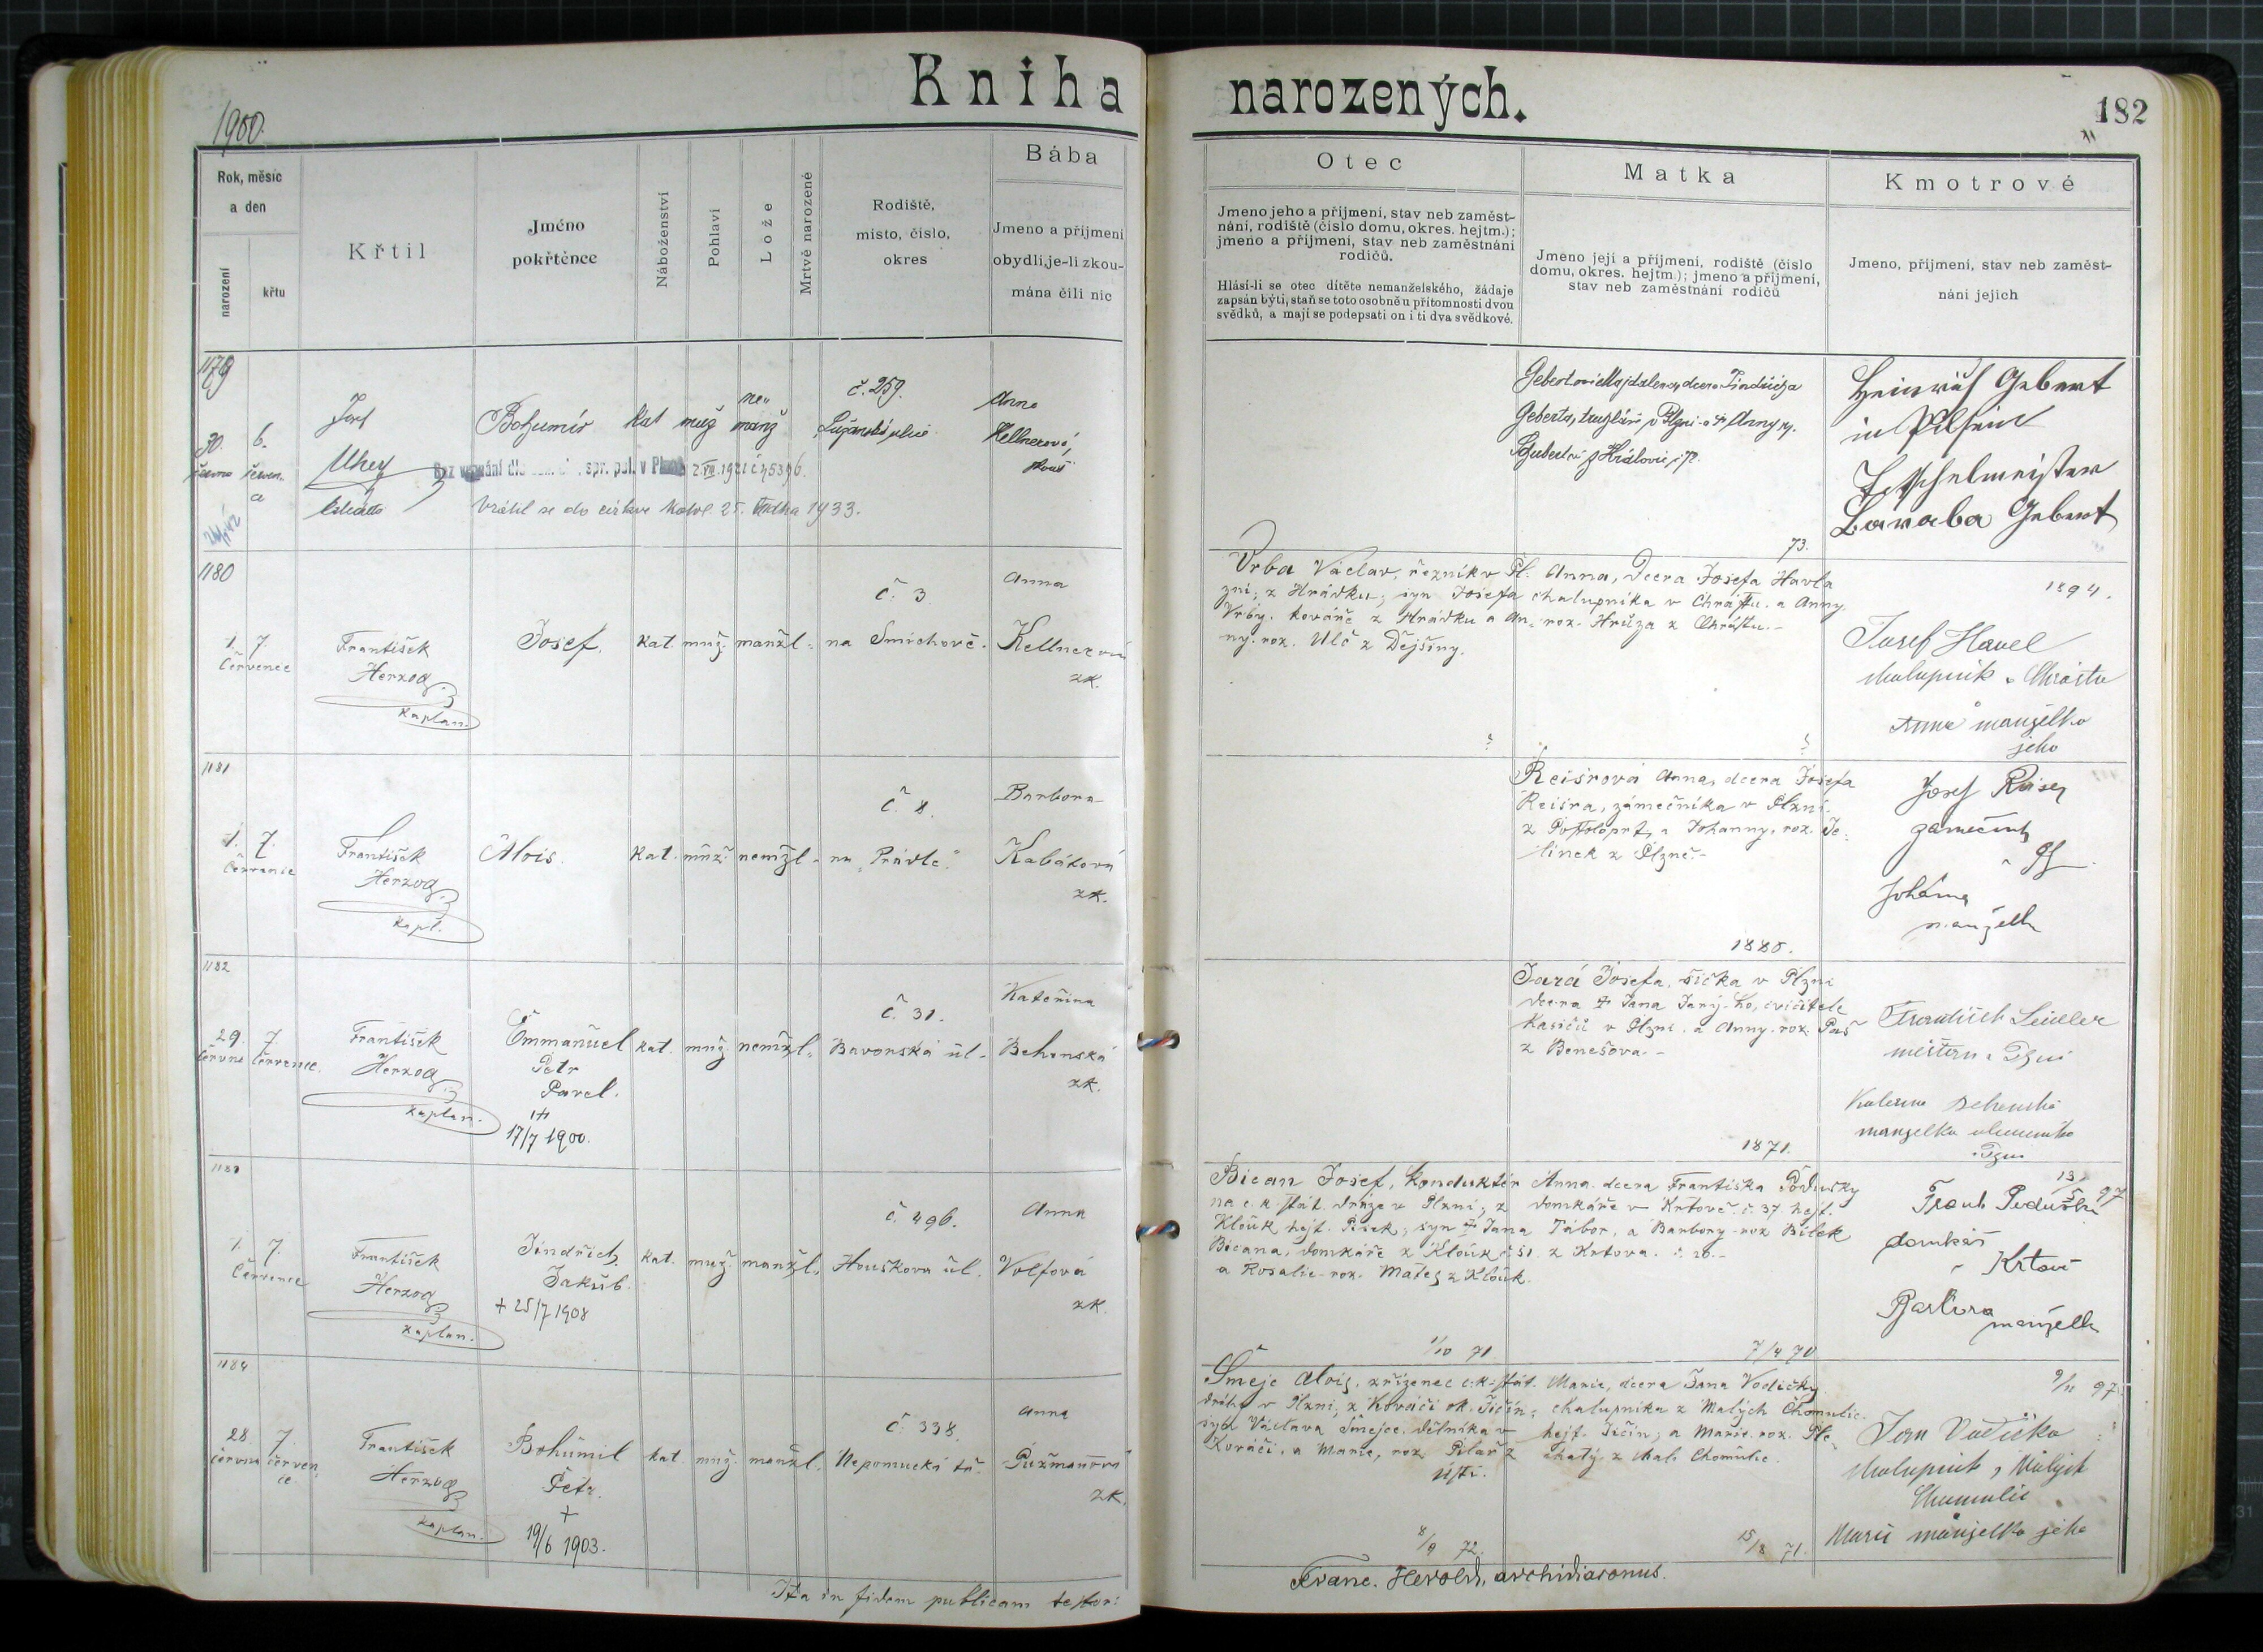 Kniha narozených.
1900.
182
Rok, měsíc
a den
narození
křtu
Křtil
Jméno
pokřtěnce
Náboženství
Pohlaví
Lože
Mrtvě narozené
Rodiště,
místo, číslo,
okres
Bába
Jmeno a příjmení
obydlí, je-li zkou-
mána čili nic
Otec
Jmeno jeho a příjmení, stav neb zaměst-
nání, rodiště (číslo domu, okres. hejtm.);
jmeno a příjmení, stav neb zaměstnání
rodičů.
Hlásí-li se otec dítěte nemanželského, žádaje
zapsán býti, staň se toto osobně u přítomnosti dvou
svědků, a mají se podepsati on i ti dva svědkové.
Matka
Jmeno její a příjmení, rodiště (číslo
domu, okres. hejtm.); jmeno a příjmení,
stav neb zaměstnání rodičů
Kmotrové
Jmeno, příjmení, stav neb zaměst-
nání jejich
1179
30. 6.
června červen-
ce
Josef
Uhey
Bohumír
kat muž
ne„
manž
č. 259.
Anna
Kellnerová
spr. pol. v 2.VII.1921 č 45396.
Vrátil se do církve katol. 25. 1933.
Gebertová Magdalena, dcera Jindřicha
Geberta, truhláře v Plzni a Anny r.
z Královic
Heinrich Gebert
in Pilsen
Tischlermeister
Gebert
73.
1180
1. 7.
Července
František
Herzog
kaplan.
Josef.
kat. muž. manžl.
č. 3
na Smíchově.
Anna
Kellnerová
zk.
Vrba Václav, řezník v Pl-
zni; z Hrádku, syn Josefa
Vrby, kováře z Hrádku a An-
ny. roz. Ulč z Dejšiny.
Anna, dcera Josefa Havla
chalupníka v Chrástu. a Anny.
roz. Hrůza z Chrástu.-
1894.
Josef Havel
chalupník v Chrástu
Anna manželka
jeho
? ?
1181
1. 7.
Července
František
Herzog
kapl.
Alois.
kat. muž. nemžl.
č. 8.
na „Prádle"
Barbora
Kabátová
zk.
Reisrová Anna, dcera Josefa
Reisra, zámečníka v Plzni.
z Postoloprt, a Johanny, roz. Je-
línek z Plzně.-
Josef Reiser
zámečník
Johanna
manželka
1880.
1182
29. 7.
června července.
František
Herzog
kaplan.
Emmanuel
Petr
Pavel.
17/7 1900.
kat. muž. nemžl.
č. 31.
Bavorská ul.
Kateřina
Behenská
zk.
Jará Josefa, šička v Plzni
dcera † Jana Jarý-ho, cvičitele
hasičů v Plzni. a Anny. roz. Paš
z Benešova.-
František Seidler
měšťan v Plzni
Kateřina Behenská
manželka
Plzni
1871.
1183
1. 7.
Července
František
Herzog
kaplan.
Jindřich,
Jakub.
+ 25/7 1908
kat. muž. manžl.
č. 496.
Houškova ul.
Anna
Volfová
zk.
Bican Josef, konduktér
na c. k. stát. dráze v Plzni; z
Klouk hejt. Písek, syn † Jana
Bicana, domkáře z Klouk č 51.
a Rosalie roz. Matej z Klouk.
Anna. dcera Františka Podušky
domkáře v Krtově č. 37 hejt.
Tábor, a Barbory roz Bílek
z Krtova. č. 20.-
13/5 97
Frant. Poduška
domkář
v Krtově
Barbora
manželka
1/10 71
7/4 70
1184
28. 7.
června červen-
ce.
František
Herzog
kaplan.
Bohumil
Petr.
+
19/6 1903.
kat. muž. manžl.
č. 338.
Nepomucká tř.
Anna
zk.
Šmejc Alois, zřízenec c.k. stát.
dráhy v Plzni, z Kováči ok. Jičín;
syn Václava Šmejce. dělníka v
Kováči, a Marie, roz. Pilař z
Ústí.
Marie, dcera Jana Vodičky.
chalupníka z Malých Chomutic.
hejt. Jičín; a Marie. roz. Ple-
chatý. z Mal. Chomutic.
9/11 97.
Jan Vodička
chalupník z Malých
Chomutic
Marie manželka jeho
8/9 72.
15/8 71.
Ita in fidem publicam testor:
Franc. Herold, archidiaconus.